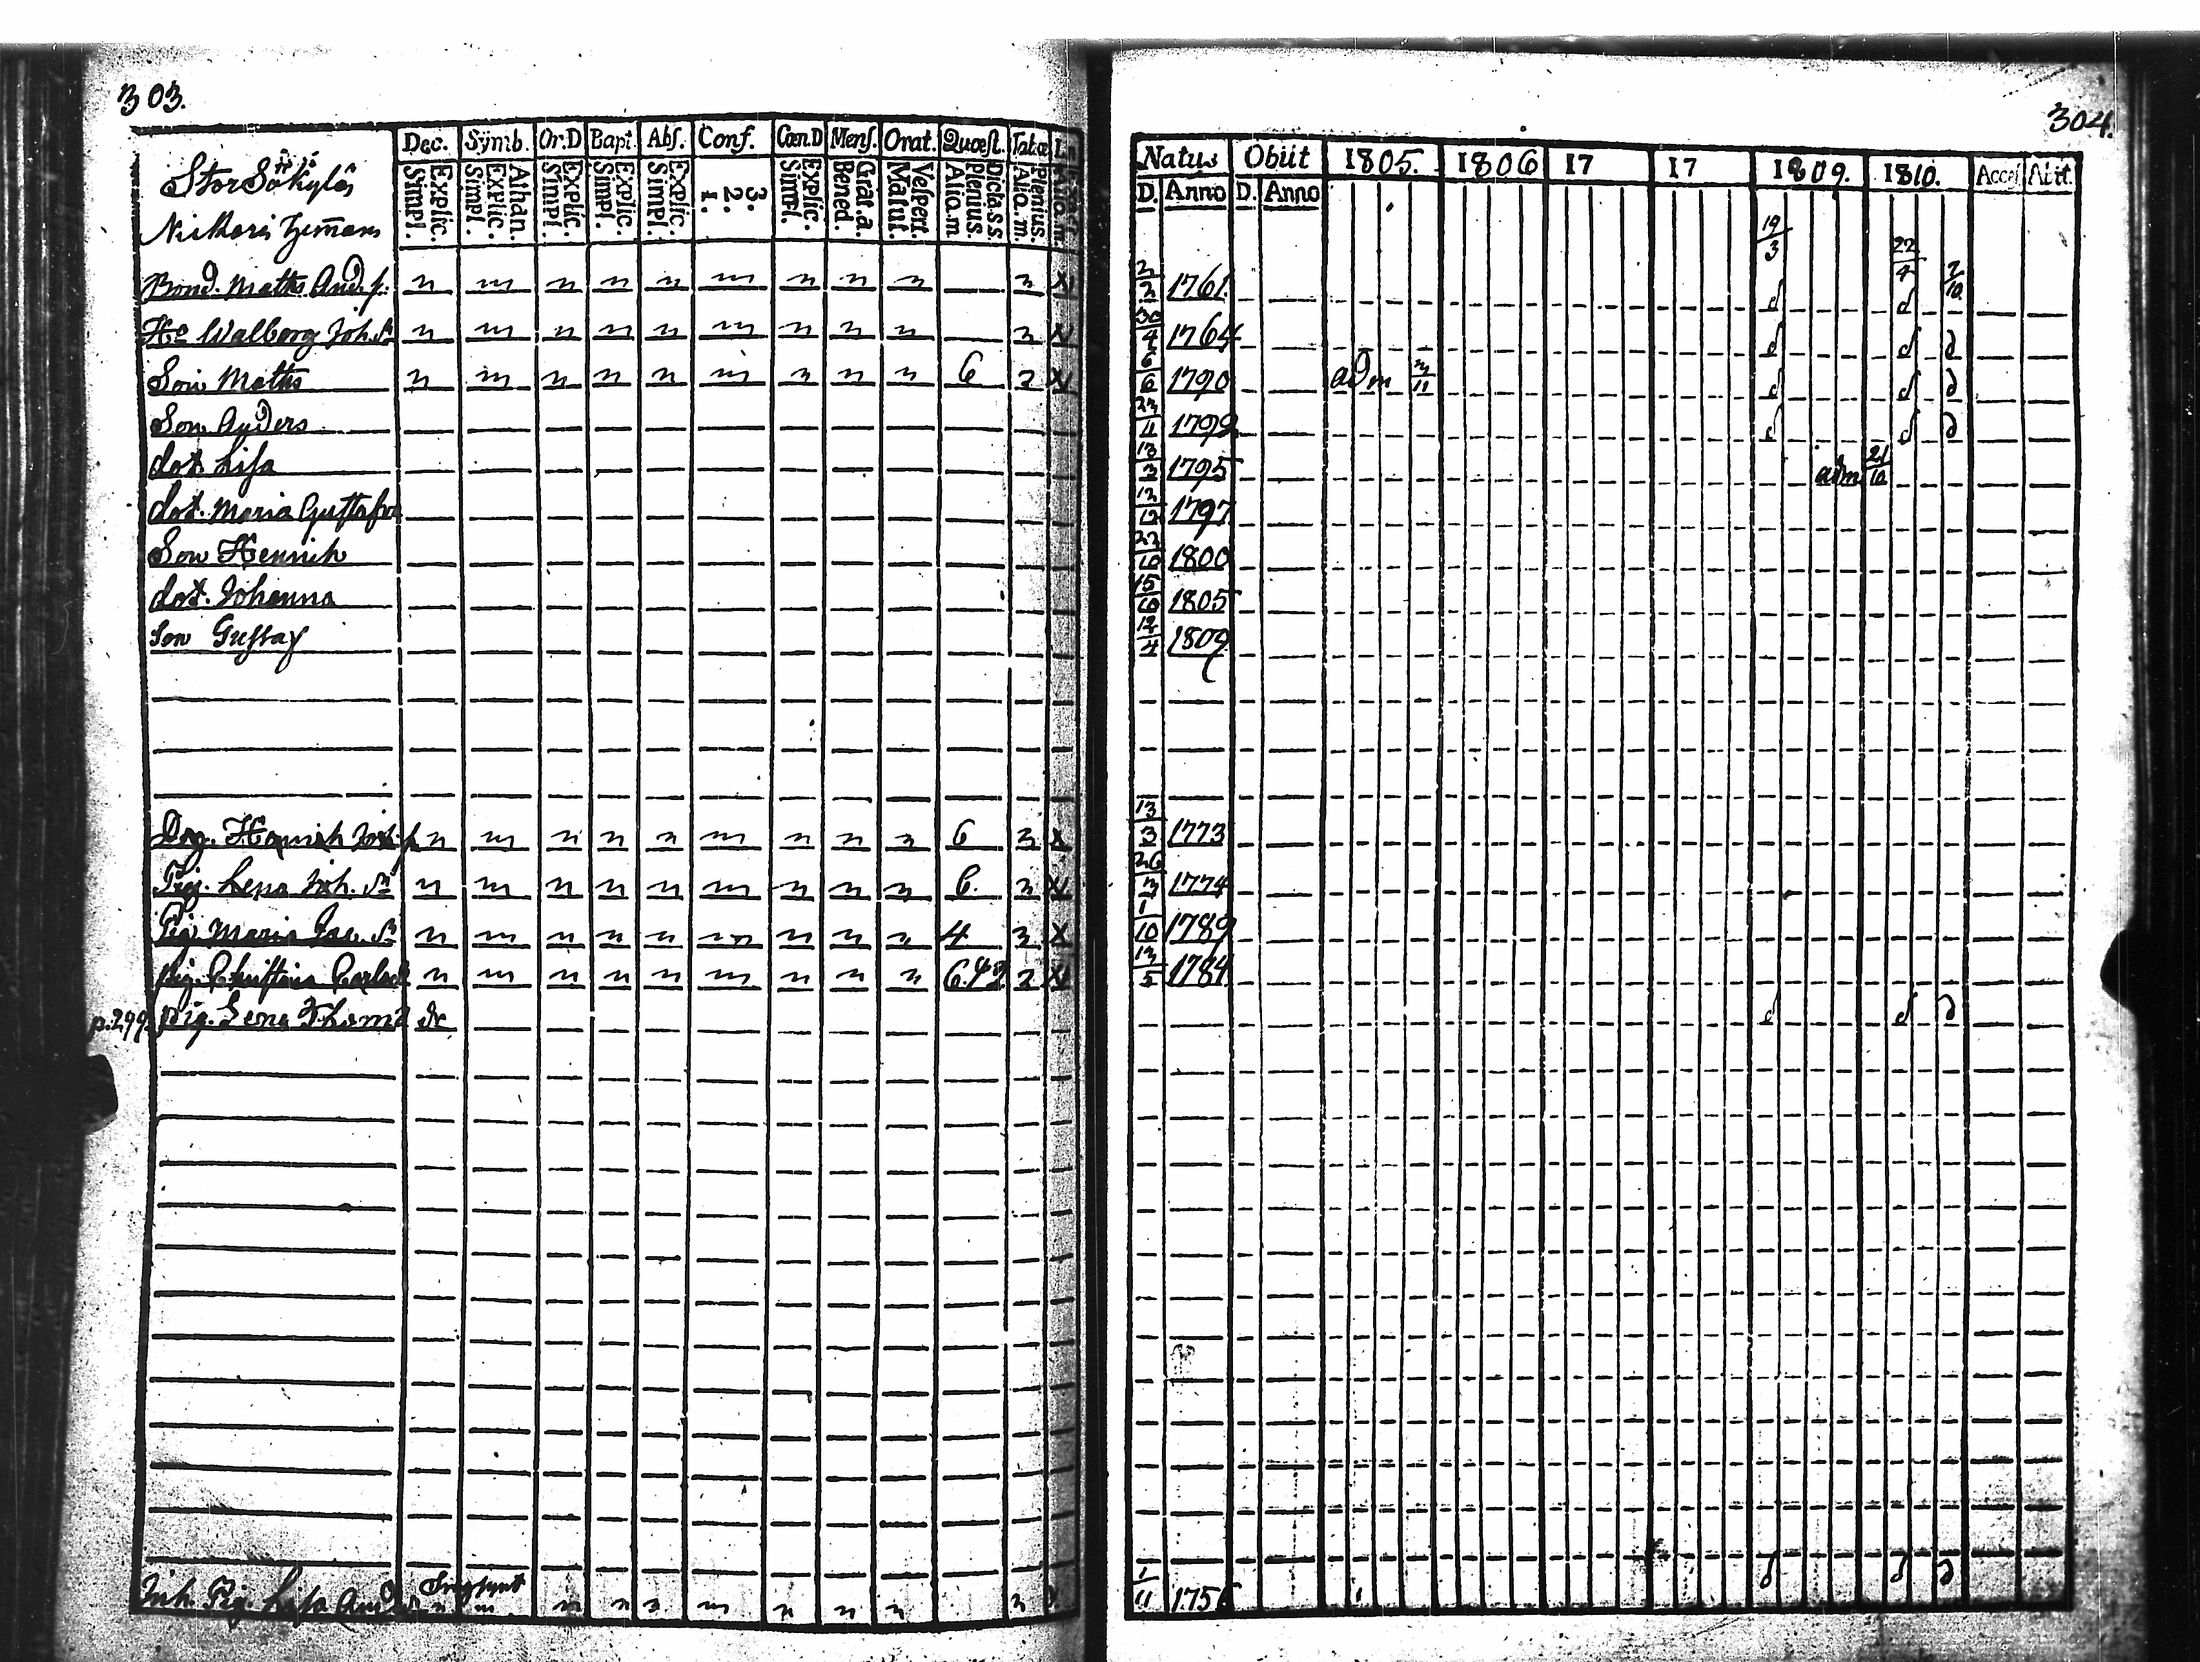 303.
Stor Säkylä
Dec. Symb. Or.D Bapt. Abſ. Conf. Cœn.D Menſ. Orat. Quœſt. Tab.œ
Explic. Simpl. Athan. Explic. Simpl. Explic. Simpl. Explic. Simpl. Explic. Simpl. 3. 2. 1. Explic. Simpl. Grat.a. Bened. Veſpert. Matut. Dicta.s.s. Plenius. Aliq.m Plenius. Aliq.m.
Bond. Matts And.ſ. n m n n n m n n n 3 X
Ho Walborg Joh.dr n m n n n m n n n 3 X
Son Matts n m n n n m n n n 6 2 X
Son Anders
dot. Liſa
dot. Maria Guſtafva
Son Henrich
dot. Johanna
Son Guſtaf
Drg. Henrich n m n n n m n n n 6 3 X
Pig. Lena Joh. dr n m n n n m n n n 6. 3 X
Pig Maria Jac. dr n m n n n m n n n 4 3 X
Pig. Chriſtina Carlsd n m n n n m n n n 2 X
p.299. Pig. Lena Thomd
Inh. Pig. Liſa And n m n n m n n n
304.
Natus Obiit 1805. 1806 17 17 1809. 1810. Acceſ. Abit.
D. Anno D. Anno
19/3 22/4 7/10
2/2 1761. d d
30/4 1764 d d d
6/6 1790 adm 3/11 d d d
1792 d d d
13/3 1795 adm 21/10
12/12 1797
22/10 1800
15/10 1805
12/4 1809
13/3 1773
26/3 1774
1/10 1789
13/5 1784
d d d
1/11 1756 d d d